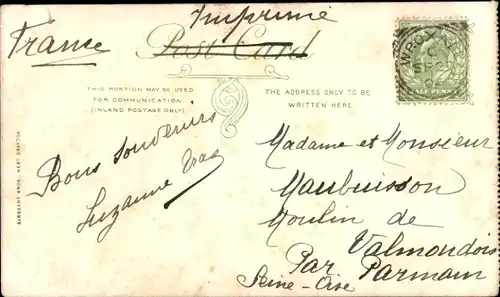 Imprimé
France
Post Card
THIS PORTION MAY BE USED
FOR COMMUNICATION
(INLAND POSTAGE ONLY)
THE ADDRESS ONLY TO BE
WRITTEN HERE
HALF PENNY
Bons souvenirs
Suzanne
Madame et Monsieur
Maubuisson
Moulin de
Valmondois
Par Parmain
Seine-Oise
SARGEANT BROS., WEST DRAYTON